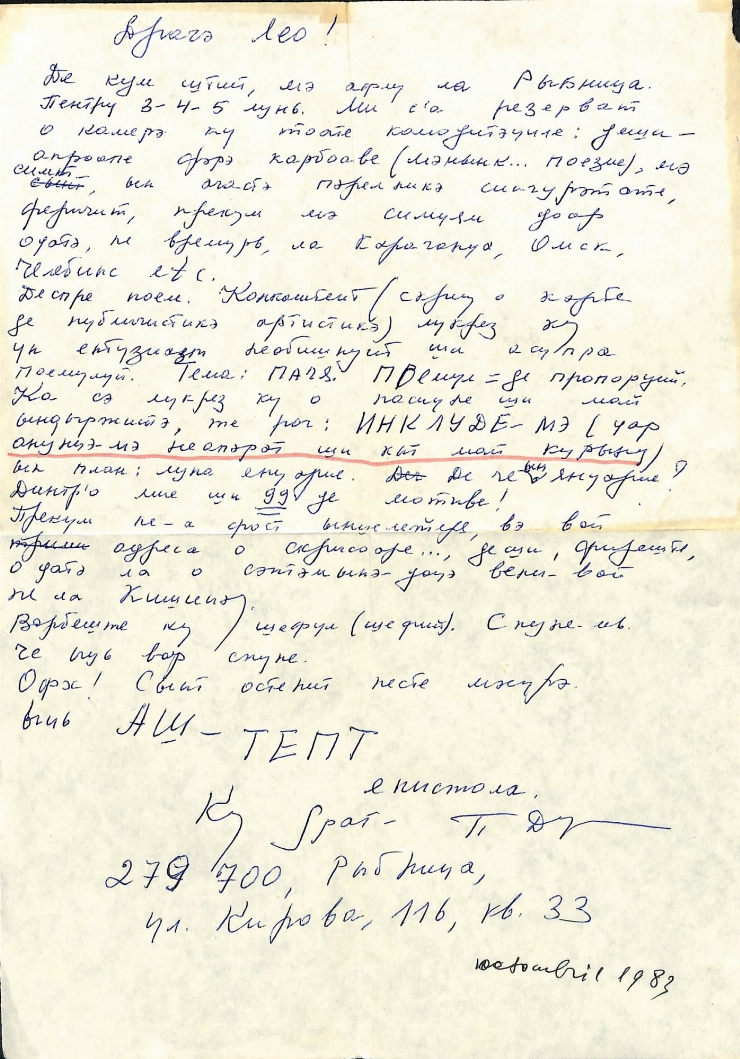 Драгэ Лео!
Де кум штий, мэ афлу ла Рыбница.
Пентру 3-4-5 лунь. Ми с'а резерват
о камерэ ку тоате комодитэциле: деши –
апроапе фэрэ карбоаве (мэнынк... поезие), мэ
симт, ын ачастэ
феричит, прекум мэ симцям доар
одатэ, пе время, ла Караганда, Омск,
Челябинс etc.
Деспре поем. Конкомитент (скриу о карте
де публичистикэ артистикэ) лукрез ку
ун ентузиазм необишнуит ши асупра
поемулуй. Тема: ПАЧЯ. ПОемул = де пропорций.
Ка сэ лукрез ку о пасиуне ши май
ындыржитэ, те рог: ИНКЛУДЕ-МЭ (дар
анунцэ-мэ неапэрат ши кыт май курынд)
ын план: луна януарие. Де че ын Януарие?
Динтр'о мие ши 99 де мотиве!
Прекум не-а фост ынцележеря, вэ вой
адреса о скрисоаре..., деши, фиреште,
о датэ ла о сэптэмынэ-доуэ вени-вой
пе ла Кишинэу.
Ворбеште ку шефул (шефий). Спуне-мь.
че ыць вор спуне.
Оф! Сынт остенит песте мэсурэ.
Ыць АШ–ТЕПТ
епистола.
Ку drag– П Ду
279 700, Рыбница,
ул. Кирова, 116, кв. 33
octombrie 1983